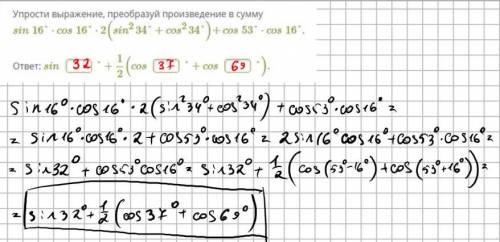 Упрости выражение, преобразуй произведение в сумму
sin 16° · cos 16° · 2(sin²34° + cos²34°) + cos 53° · cos 16°.
Ответ: sin 32 ° + 1/2 (cos 37 ° + cos 69 °).
Sin16° · cos16° · 2 (sin²34° + cos²34°) + cos53° · cos16° =
= sin16° · cos16° · 2 + cos53° · cos16° = 2sin16° cos16° + cos53° · cos16° =
= sin32° + cos53° cos16° = sin32° + 1/2 (cos(53°-16°) + cos(53°+16°)) =
= sin32° + 1/2 (cos37° + cos69°)